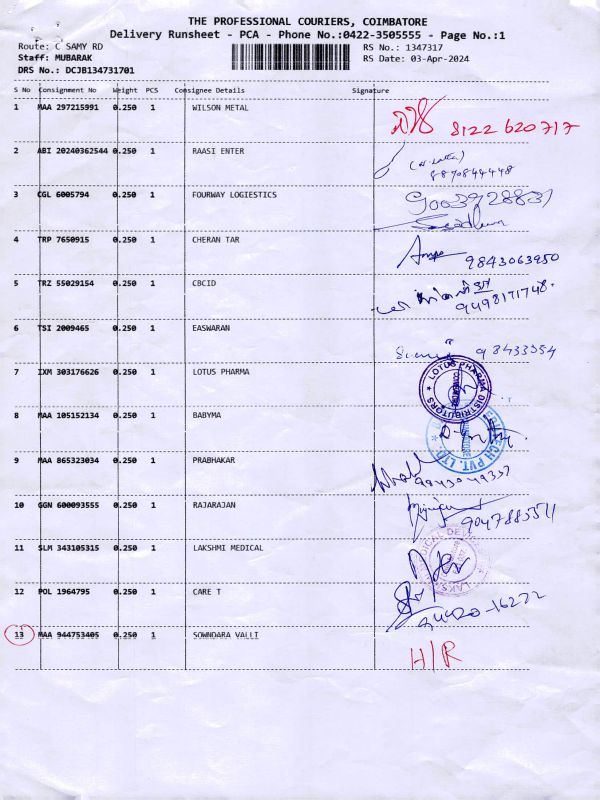 THE PROFESSIONAL COURIERS, COIMBATORE
Delivery Runsheet - PCA - Phone No.:0422-3505555 - Page No.:1
Route: C SAMY RD RS No.: 1347317
Staff: MUBARAK RS Date: 03-Apr-2024
DRS No.: DCJB134731701
S No Consignment No Weight PCS Consignee Details Signature
1 MAA 297215991 0.250 1 WILSON METAL
8122620717
2 ABI 20240362544 0.250 1 RAASI ENTER
8870844448
3 CGL 6005794 0.250 1 FOURWAY LOGIESTICS
9003928831
4 TRP 7650915 0.250 1 CHERAN TAR
9843063950
5 TRZ 55029154 0.250 1 CBCID
9498171748.
6 TSI 2009465 0.250 1 EASWARAN
98433554
7 IXM 303176626 0.250 1 LOTUS PHARMA
LOTUS PHARMA DISTRIBUTORS
8 MAA 105152134 0.250 1 BABYMA
PVT. LTD.
9 MAA 865323034 0.250 1 PRABHAKAR
10 GGN 600093555 0.250 1 RAJARAJAN
11 SLM 343105315 0.250 1 LAKSHMI MEDICAL
12 POL 1964795 0.250 1 CARE T
13 MAA 944753405 0.250 1 SOWNDARA VALLI
H/R